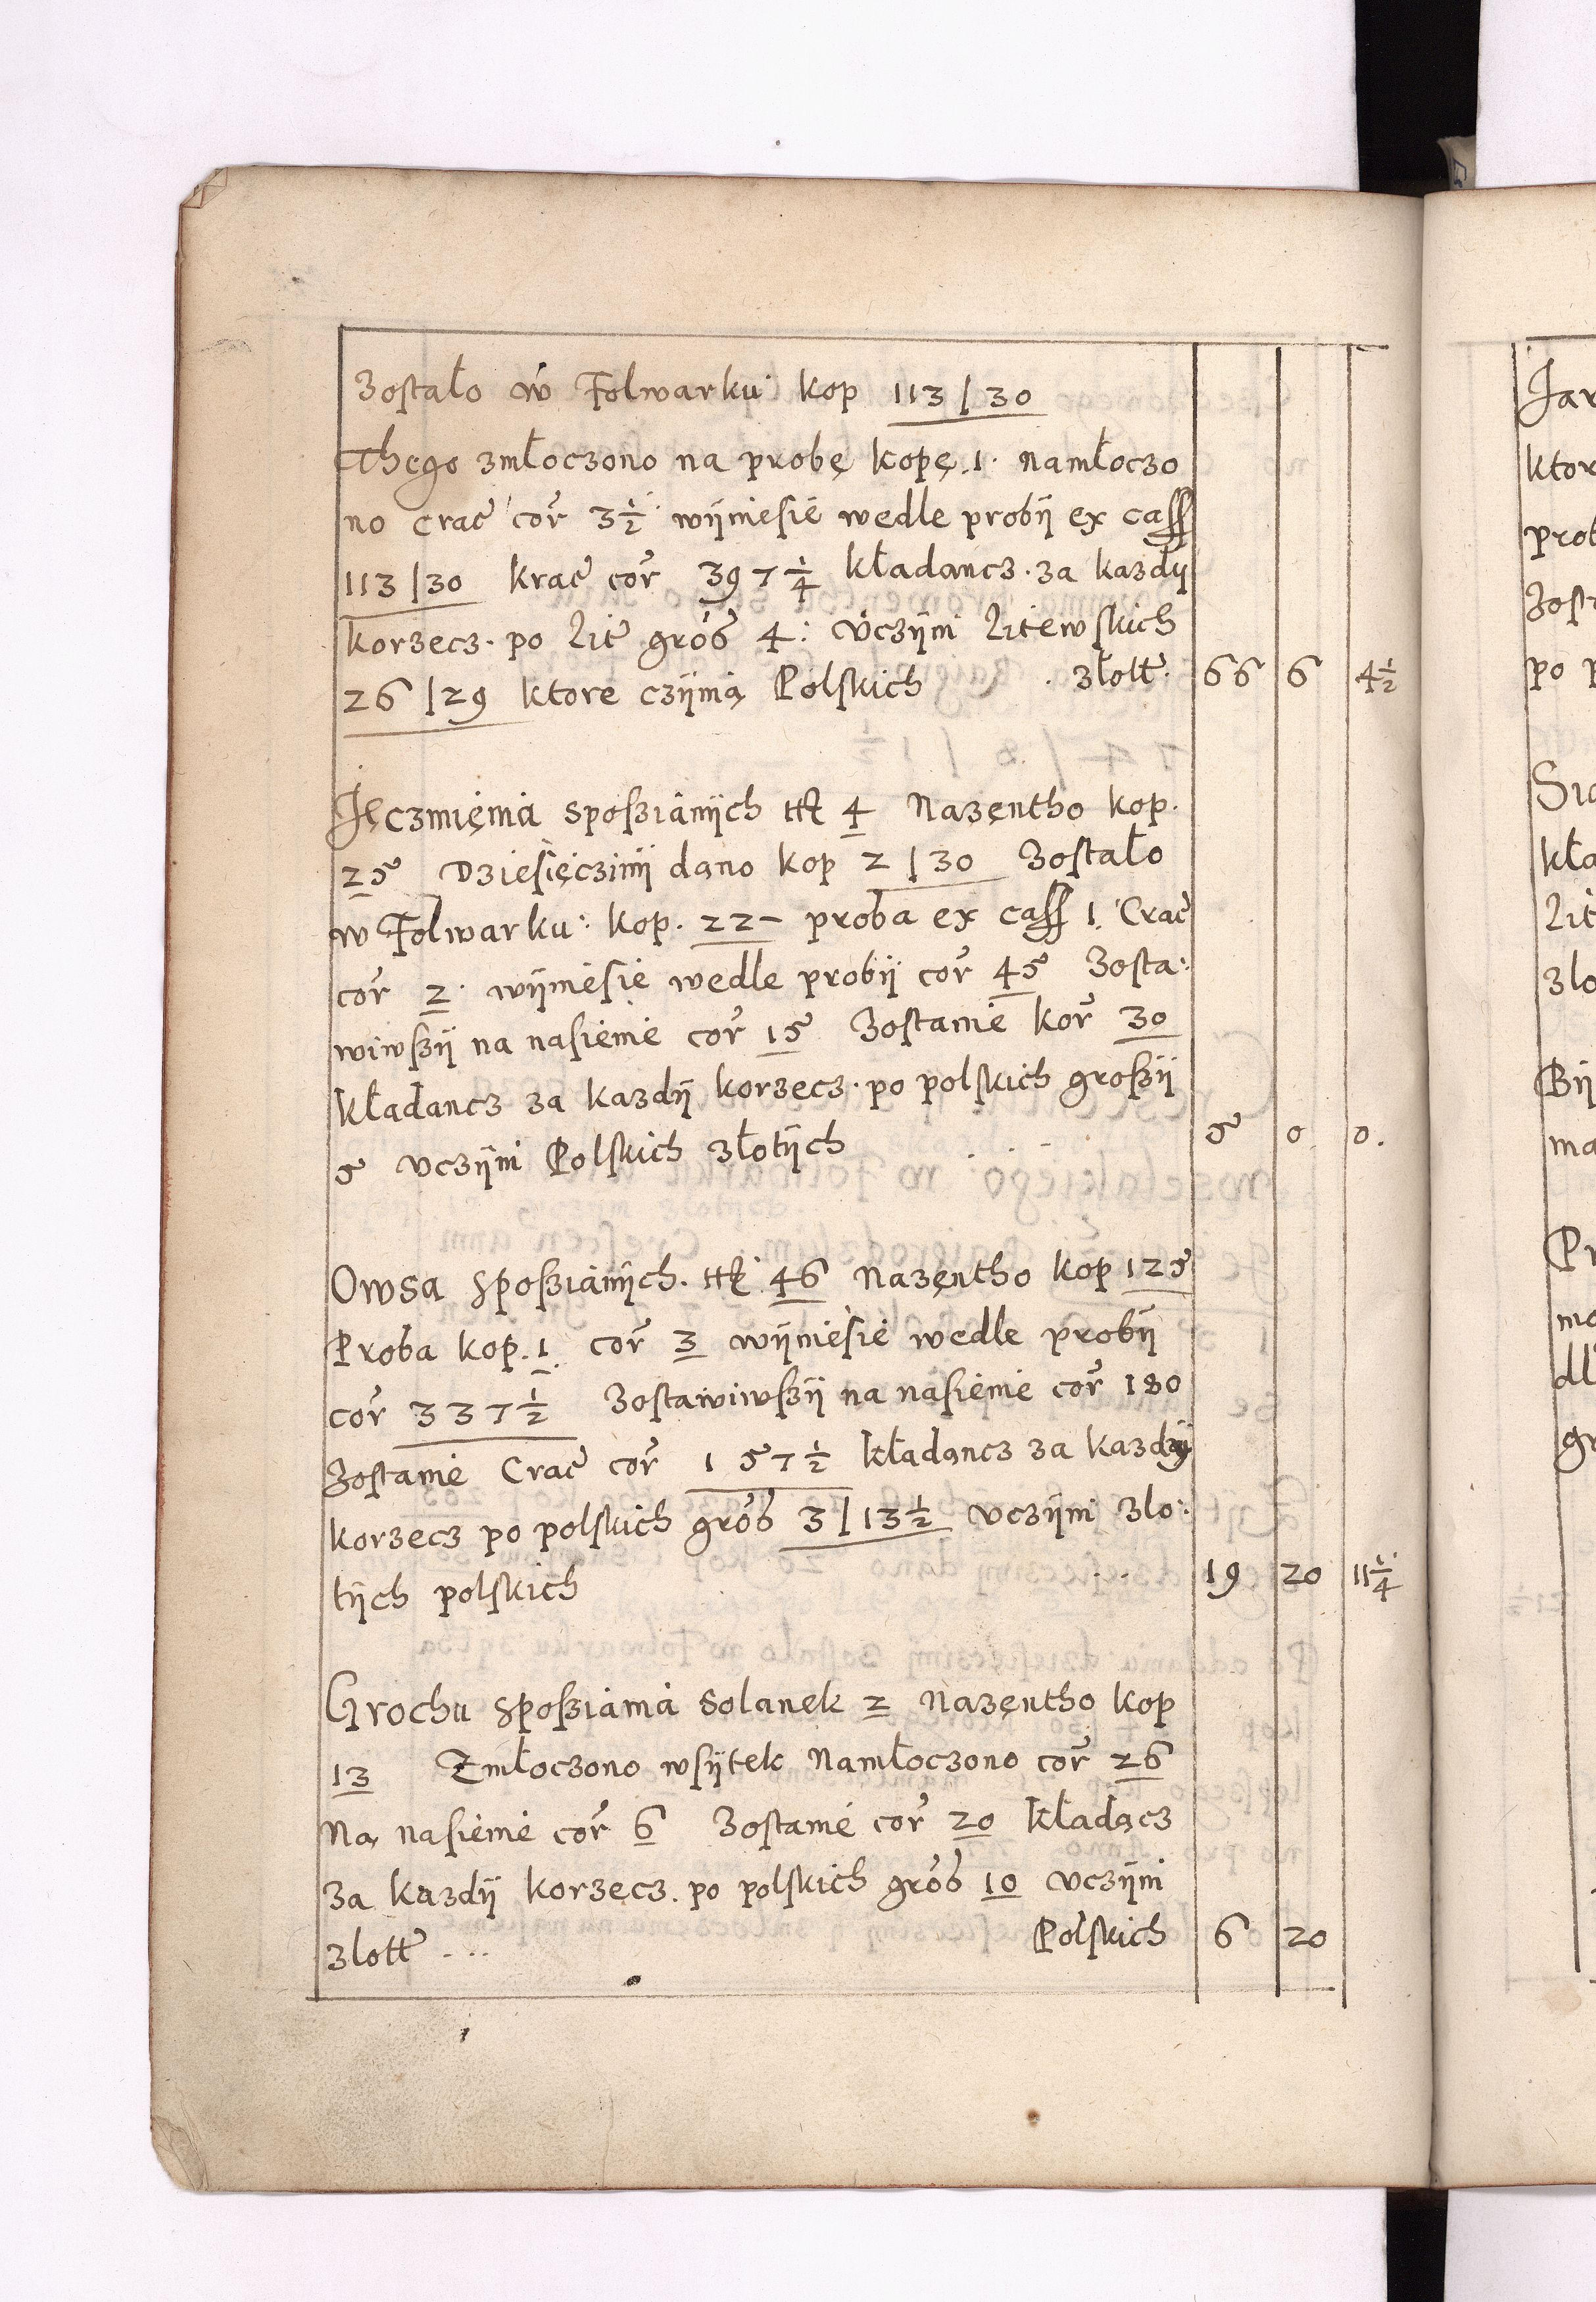 Zostało w Folwarku kop 113/30
Thego zmłoczono na probę kopę 1 namłoczo
no crac cor 3½ wÿniesie wedle probÿ ex cass
113/30 krac cor 397¼ kładancz za kazdÿ
korzecz po Lit gros 4: Vczÿni Litewskich
26/29 ktore czÿnią Polskich złott 66 6 4½
Jęczmięnia sposzianÿch ttt 4 Nazentho kop
25 Dziesięczinÿ dano kop 2/30 Zostało
w Folwarku: kop. 22– proba ex cass 1 Crac
cor 2 wÿniesie wedle probÿ cor 45 Zosta:
wiwszÿ na nasienie cor 15 Zostanie kor 30
kładancz za kazdÿ korzecz po polskich groszÿ
5 vczÿni Polskich złotÿch 5 0 0.
Owsa sposzianÿch ttt 46 Nazentho kop 125
Proba kop. 1 cor 3 wÿniesie wedle probÿ
cor 337½ Zostawiwszÿ na nasienie cor 180
Zostanie Crac cor 157½ kładancz za kazdÿ
korzecz po polskich gros 3/13½ vczÿni zlo:
tÿch polskich 19 20 11¼
Grochu sposziania solanek 2 Nazentho kop
13 Zmłoczono wsÿtek Namłoczono cor 26
Na nasienie cor 6 Zostanie cor 20 kładącz
za kazdÿ korzecz po polskich gros 10 vczÿni
zlott ... Polskich 6 20
Jar
ktor
prob
Zost
po p
Sia
kła
Lit
zlo
Bÿ
ma
Pr
mo
dl
gr